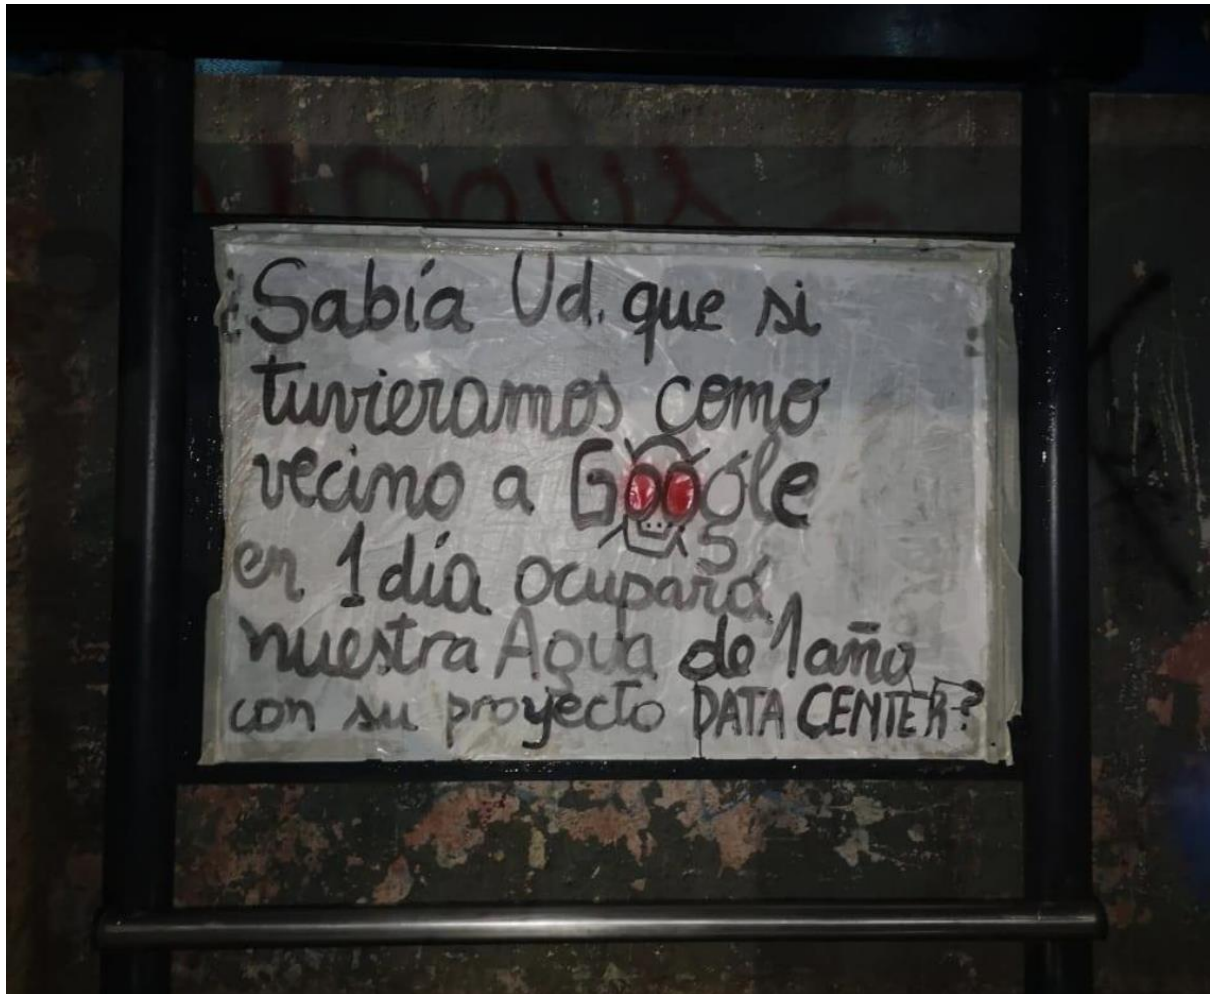 ¿Sabía Ud. que si
tuvieramos como
vecino a Google
en 1 día ocupará
nuestra Agua de 1 año
con su proyecto DATA CENTER?